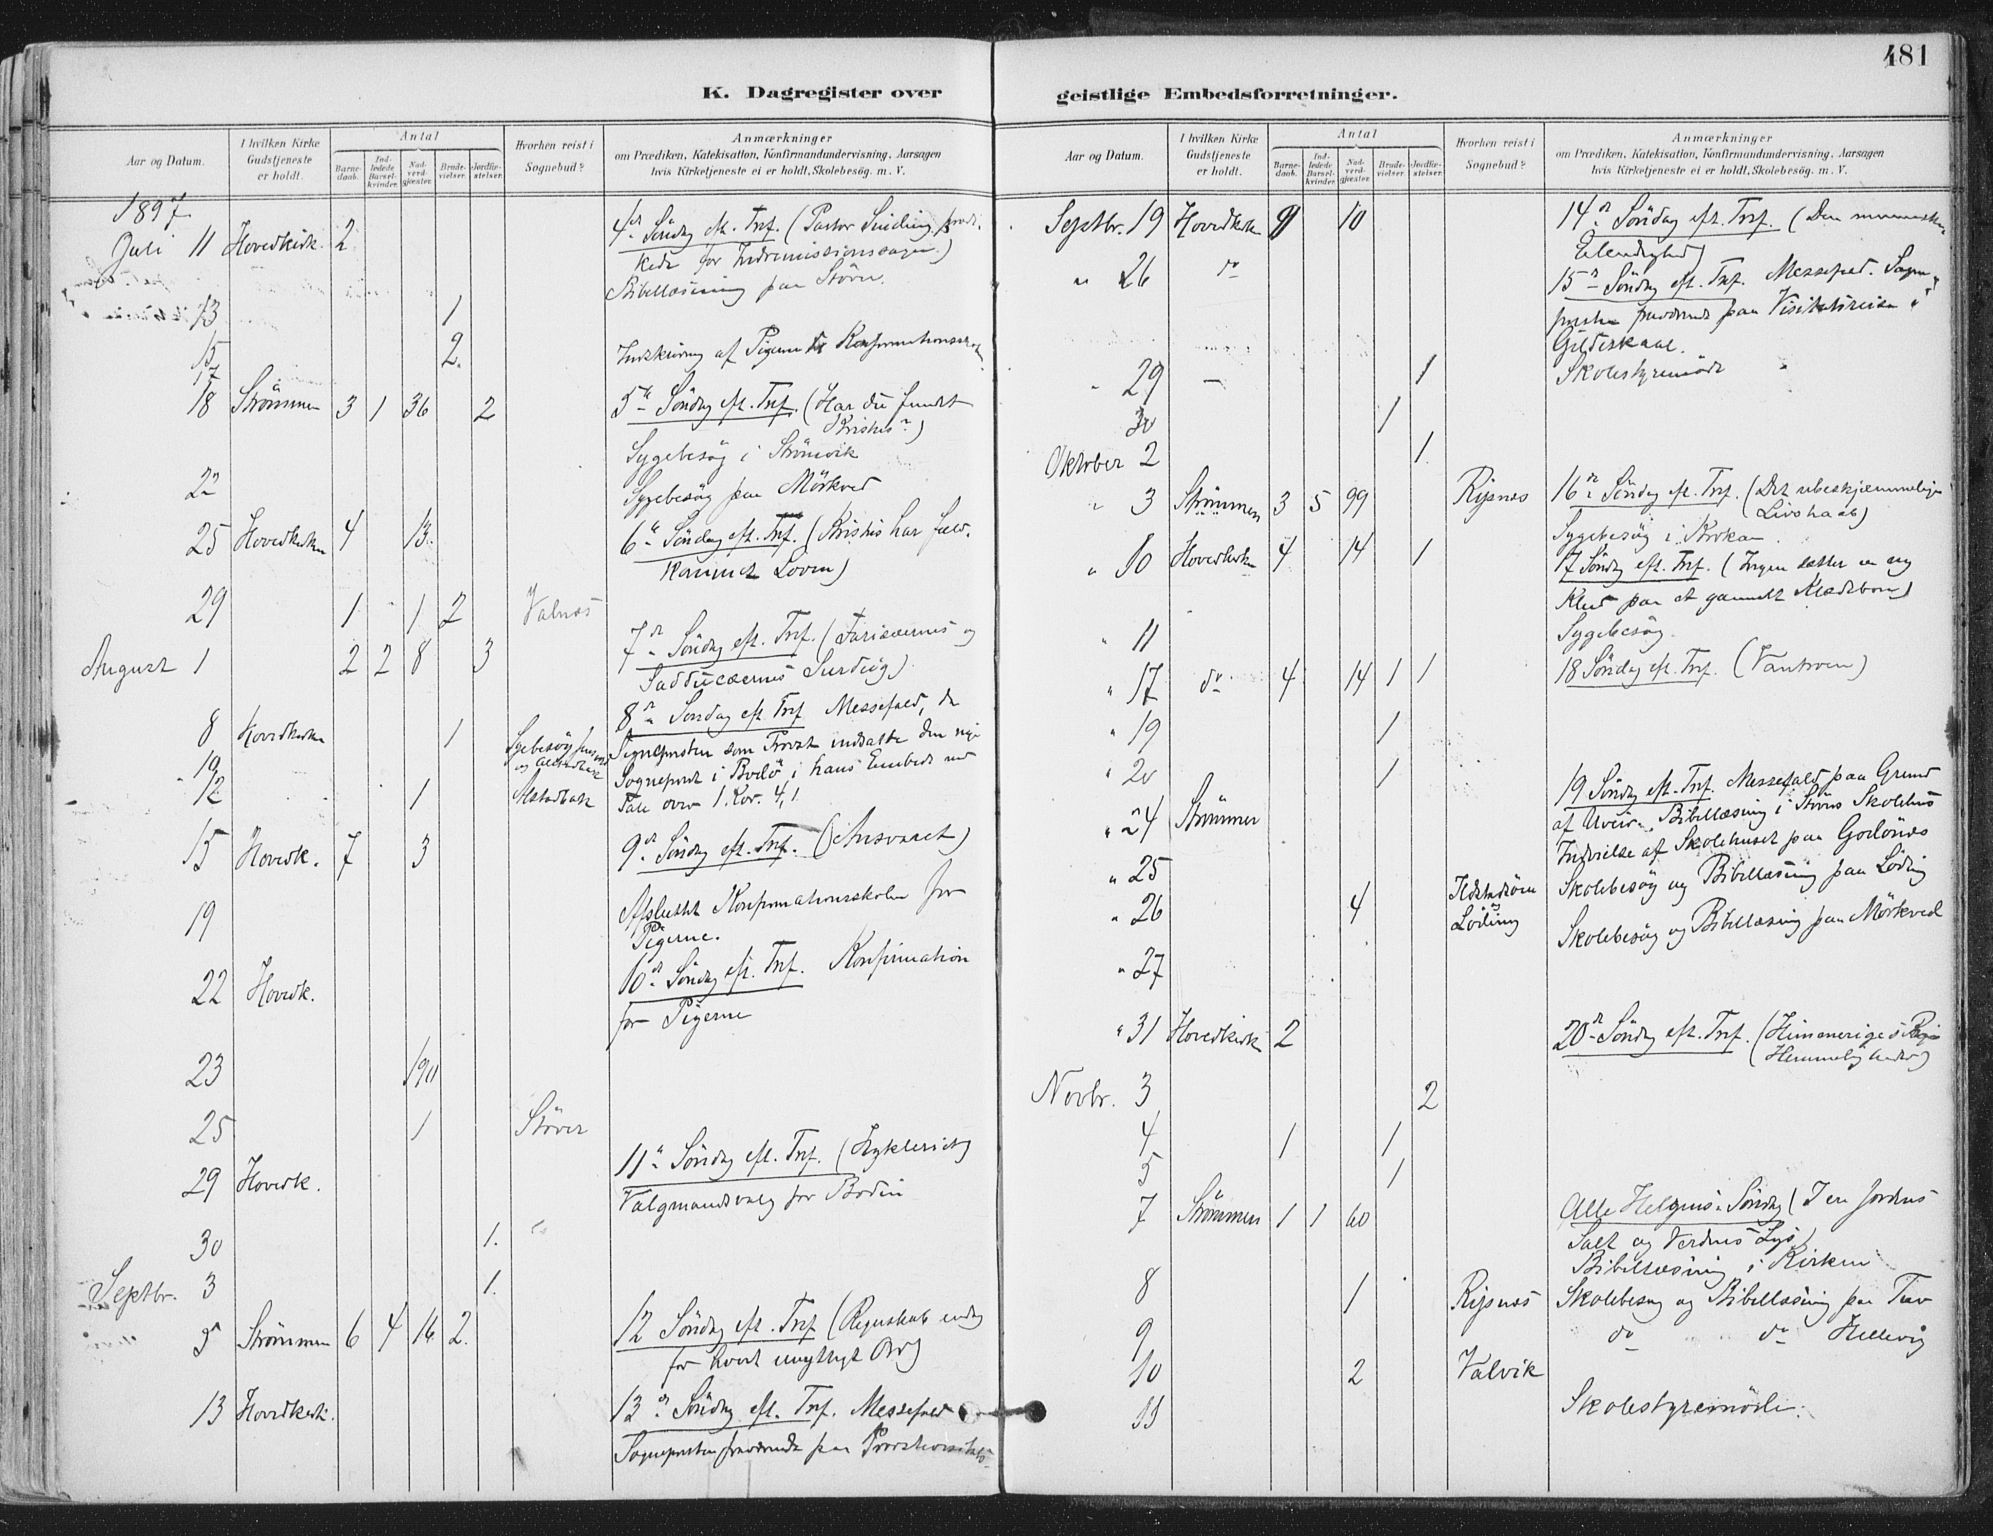 481
K. Dagregister over geistlige Embedsforretninger.
Aar og Datum.
I hvilken Kirke Gudstjeneste er holdt.
Antal
Barnedaab.
Indledede Barselkvinder.
Nadverdgjæster.
Brudevielser.
Jordfæstelser.
Hvorhen reist i Sognebud?
Anmærkninger
om Prædiken, Katekisation, Konfirmandundervisning, Aarsagen
hvis Kirketjeneste ei er holdt, Skolebesög m. V.
1897
Juli 11 Hovedkirk 2 4de Söndag eft. Tref. (Pastor Sinding præ-
kede for Indremissionssagen)
Bibellæsning paa Stören.
13 1
15 2. Indskrivning af Pigerne Konfirmations
17
18 Strömmen 3 1 36 2 5te Söndag eft. Tref. (Har du fundet
Kristus?)
Sygebesög i Strömvik
22 Sygebesög paa Mörkved
25 Hovedkirken 4 13. 6te Söndag eft. Tref. (Kristus har fuld-
kommet Loven)
29 1 1 2 Valnæs
August 1 2 2 8 3 7de Söndag eft. Tref. (Farisæernes og
Sadducæernes Surdeig)
8 Hovedkirken 1 8de Söndag eft. Tref Messefald, da
Sygebesög
og Alstadbak
Sognepresten som Provst indsatte den nye
10
Sogneprest i Bodö i hans Embede med
12 1 Alstadbak Tale over 1. Kor. 4,1
15 Hovedk. 7 3 9de Söndag eft. Tref. (Ansvaret)
19 Afsluttet Konfirmationsskolen for
Pigerne.
22 Hovedk. 10de Söndag eft. Tref. Konfirmation
for Pigerne
23 190
25 1 Stöver
29 Hovedk. 11te Söndag eft. Tref. (Hykleriet)
Valgmandsvalg for Bodin
30 1.
Septbr. 3 1.
5 Strömmen 6 4 16 2. 12 Söndag eft. Tref (Regnskab
for hvert unyttigt Ord)
13 Hovedkirk. 13de Söndag eft. Tref. Messefald
Sognepresten fraværende paa
Aar og Datum.
I hvilken Kirke Gudstjeneste er holdt.
Antal
Barnedaab.
Indledede Barselkvinder.
Nadverdgjæster.
Brudevielser.
Jordfæstelser.
Hvorhen reist i Sognebud?
Anmærkninger
om Prædiken, Katekisation, Konfirmandundervisning, Aarsagen
hvis Kirketjeneste ei er holdt, Skolebesög m. V.
Septbr. 19 Hovedkirken 9 10 14de Söndag eft. Tref. (Den menneskelige
Elendighed)
" 26 do 15de Söndag eft. Tref. Messefald. Sogne-
presten fraværende paa Visitatsreise i
Gildeskaal.
" 29 — 1 Skolestyremöde
30 1
Oktober 2 1
" 3 Strömmen 3 5 99 Ripnæs 16de Söndag eft. Tref. (Det ubeskjæmmelige
Livshaab)
Sygebesög i
" 10 Hovedkirken 4 14 1 17 Söndag eft. Tref. (Ingen sætter en ny
Klud paa et gammelt Klædebon)
" 11 Sygebesög.
" 17 do 4 14 1 1 18 Söndag eft. Tref. (Vantroen)
" 19 1
" 20 1
" 24 Strömmen 19 Söndag eft. Tref. Messefald paa Grund
af Uveir. Bibellæsning i Störens Skolehus
" 25 Indvielse af Skolehuset paa Godönes
" 26 4 Ildstadsöen
og
Löding
Skolebesög og Bibellæsning paa Löding
" 27 Skolebesög og Bibellæsning paa Mörkved
" 31 Hovedkirk 2 20de Söndag eft. Tref. (Himmeriges Riges
Hemmeligheder)
Novbr. 3 2
4 1 1
5 1
7 Strömmen 1 1 60 Alle Helgens Söndag (I ere Jordens
Salt og Verdens Lys)
Bibellæsning i Kirken
8 1 Ripnæs Skolebesög og Bibellæsning paa
9 do do Hellevig
10 2 Valvik
11 Skolestyremöde.